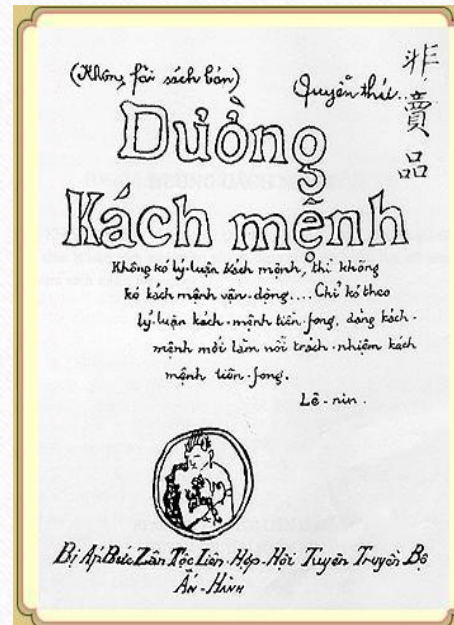 (Không fải sách bán)
Quyển thứ...
非賣品
Đường
Kách mệnh
Không kó lý-luận kách mệnh, thì không
kó kách mệnh vận-động.... Chỉ kó theo
lý-luận kách-mệnh tiền-fong, đảng kách-
mệnh mới làm nổi trách-nhiệm kách
mệnh tiền-fong.
Lê-nin.
Bị Áp Bức Zân Tộc Liên Hợp-Hội Tuyên Truyền Bộ
Ấn-Hành